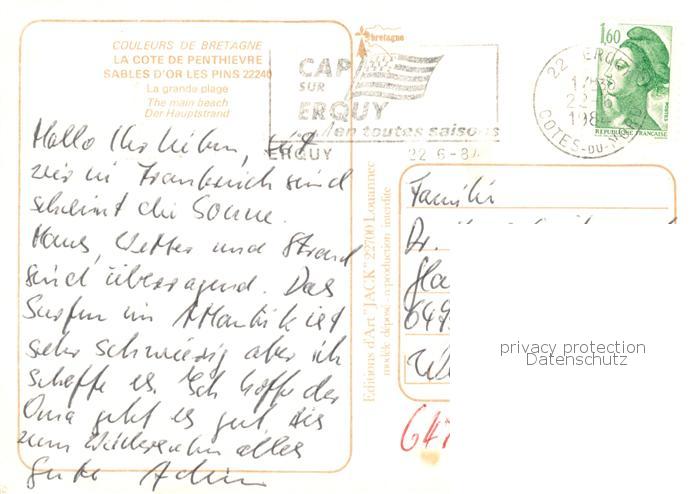 COULEURS DE BRETAGNE
LA COTE DE PENTHIEVRE
SABLES D'OR LES PINS 22240
La grande plage
The main beach
Der Hauptstrand
bretagne
CAP
SUR
ERQUY
en toutes saisons
ERQUY 22-6-8
22 ERQUY
17H30
22-
198
COTES-DU-NORD
1,60
REPUBLIQUE FRANÇAISE
Hallo Ihr Lieben, seit
wir in Frankreich sind
scheint die Sonne.
Haus, Wetter und Strand
sind überragend. Das
Surfen im Atlantik ist
sehr schwierig aber ich
schaffe es. Ich hoffe der
Oma geht es gut. Bis
zum Wiedersehn alles
Gute Achim
Editions d'Art "JACK" 22700 Louannec
modèle déposé - reproduction interdite
Familie
Dr.
649
647
privacy protection
Datenschutz